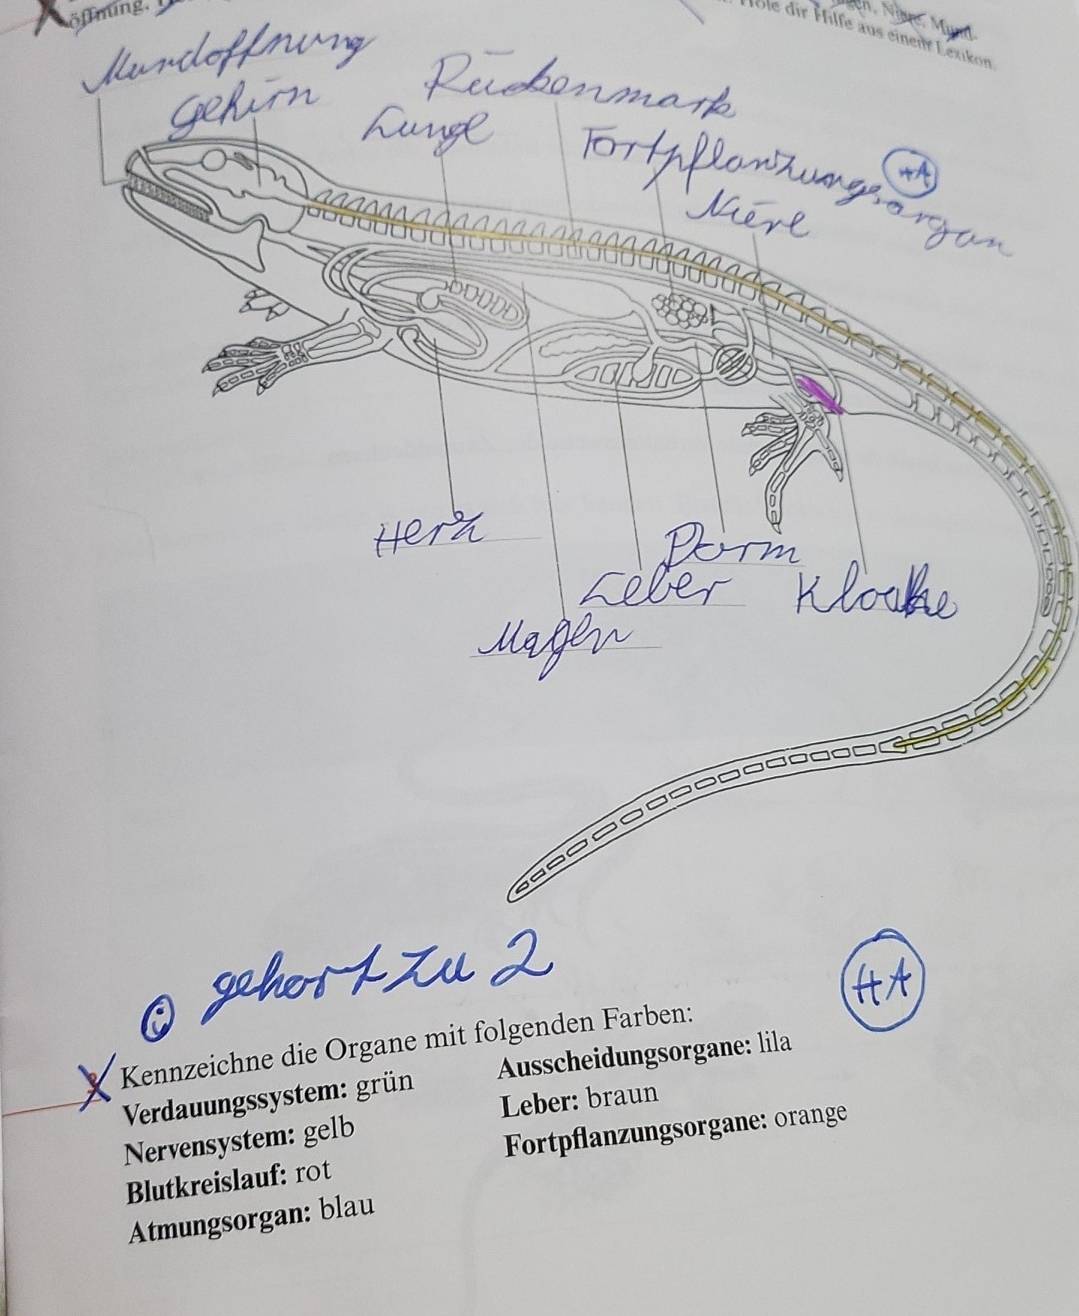 öffnung.
Hole dir Hilfe aus einem Lexikon.
Mundoffnung
gehirn
Rückenmark
Lunge
Fortpflanzungsorgan
HA
Niere
Herz
Darm
Leber
Kloake
Magen
gehort zu 2
HA
Kennzeichne die Organe mit folgenden Farben:
Verdauungssystem: grün
Ausscheidungsorgane: lila
Nervensystem: gelb
Leber: braun
Blutkreislauf: rot
Fortpflanzungsorgane: orange
Atmungsorgan: blau